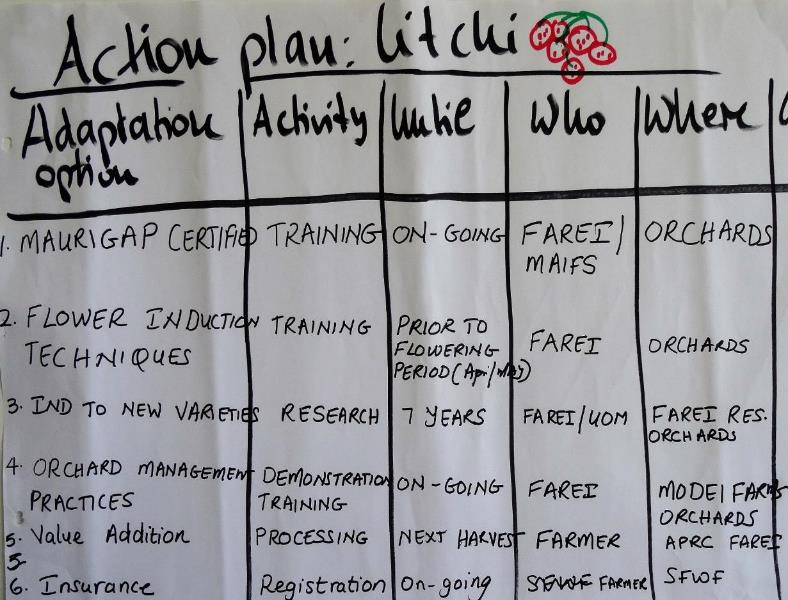 Action plan: litchi
Adaptation option Activity Who Where
1. MAURIGAP CERTIFIED TRAINING ON-GOING FAREI/ MAIFS ORCHARDS
2. FLOWER INDUCTION TECHNIQUES TRAINING PRIOR TO FLOWERING PERIOD (Apr/May) FAREI ORCHARDS
3. IND TO NEW VARIETIES RESEARCH 7 YEARS FAREI/UOM FAREI RES. ORCHARDS
4. ORCHARD MANAGEMENT PRACTICES DEMONSTRATION TRAINING ON-GOING FAREI MODEl FARMS ORCHARDS
5. Value Addition PROCESSING NEXT HARVEST FARMER APRC FAREI
5.
6. Insurance Registration On-going FARMER SFWF